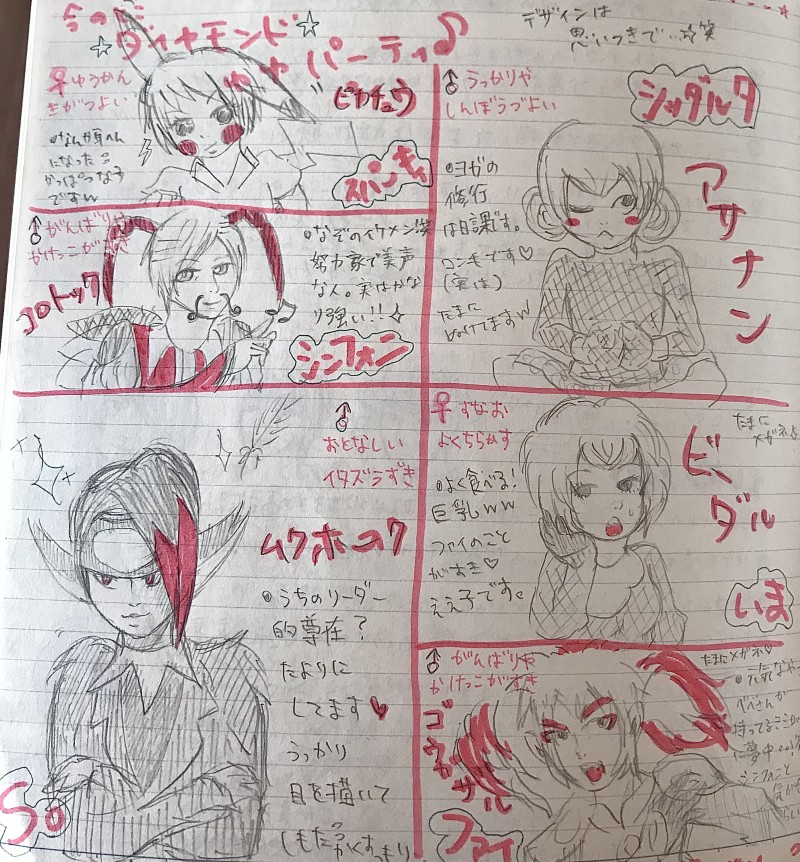 今の
☆ダイヤモンド☆
パーティ♪
デザインは
思いつきで…笑
♀ゆうかん
きがつよい
ピカチュウ
スパーキィ
●なんか耳へん
になった
かっぱつな子
ですw
♂うっかりや
しんぼうづよい
シッダルタ
アサナン
●ヨガの
修行
は日課です。
ロン毛です♡
(実は)
たまに
ぬけてますw
♂がんばりや
かけっこがすき
コロトック
●なぞのイケメン笑
努力家で美声
な人。実はかな
り強い!!
シンフォニ
♂
おとなしい
イタズラずき
ムクホーク
●うちのリーダー
的尊在?
たよりに
してます♥
うっかり
目を描いて
しもた
So
♀すなお
よくちらかす
たまに
メガネ
ビーダル
●よく食べる!
巨乳ww
ファイのこと
がすき♡
ええ子です。
いま
♂がんばりや
かけっこがすき
たまにメガネ♡
ゴウカザル
ファイ
に夢中